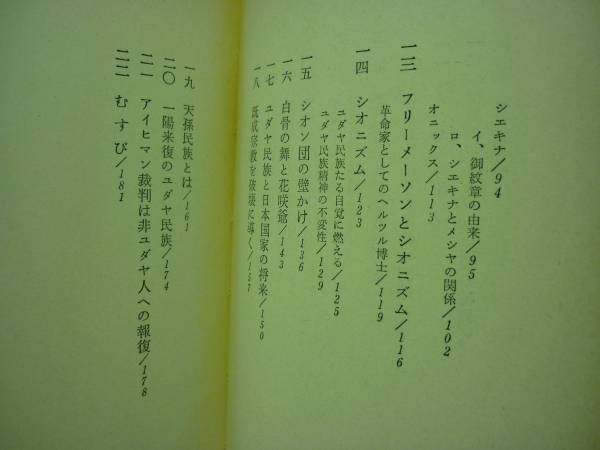 シエキナ/94
イ、御紋章の由来/95
ロ、シエキナとメシヤの関係/102
オニックス/113
一三 フリーメーソンとシオニズム/116
革命家としてのヘルツル博士/119
一四 シオニズム/123
ユダヤ民族たる自覚に燃える/125
ユダヤ民族精神の不変性/129
一五 シオン団の壁かけ/136
一六 白骨の舞と花咲爺/143
一七 ユダヤ民族と日本国家の将来/150
一八 既成宗教を破壊に導く/157
一九 天孫民族とは/161
二〇 一陽来復のユダヤ民族/174
二一 アイヒマン裁判は非ユダヤ人への報復/178
二二 むすび/181